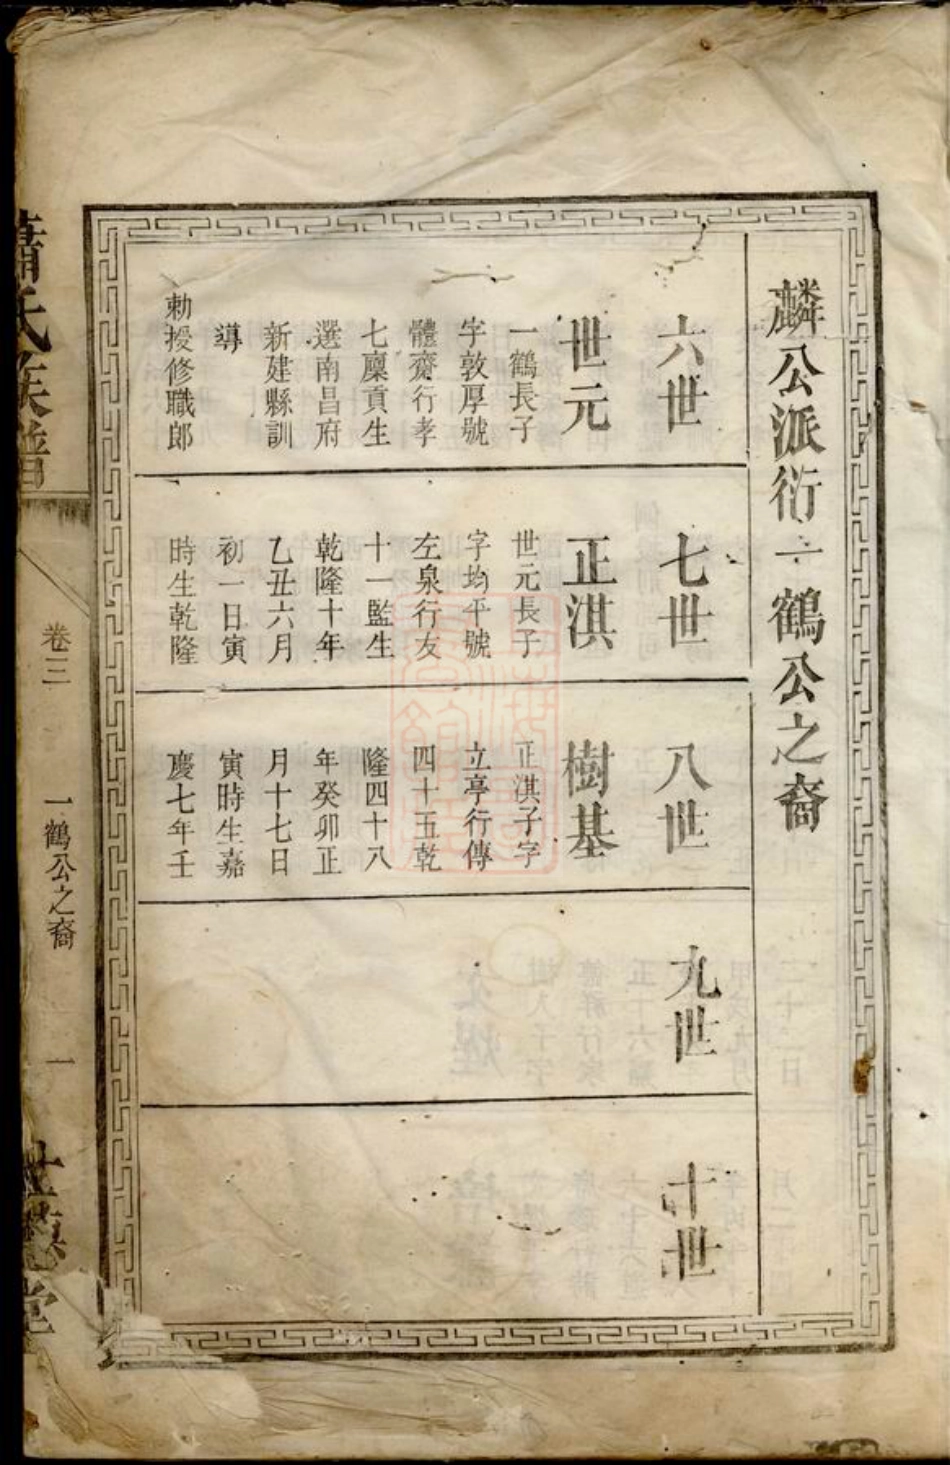 麟公派衍一鶴公之裔
六世
世元
一鶴長子
字敦厚號
體齋行孝
七廩貢生
選南昌府
新建縣訓
導
勅授修職郎
七世
正淇
世元長子
字均平號
左泉行友
十一監生
乾隆十年
乙丑六月
初一日寅
時生乾隆
八世
樹基
正淇子字
立亭行傳
四十五乾
隆四十八
年癸卯正
月十七日
寅時生嘉
慶七年壬
九世
十世
蕭氏族譜
卷三
一鶴公之裔
一
世德堂